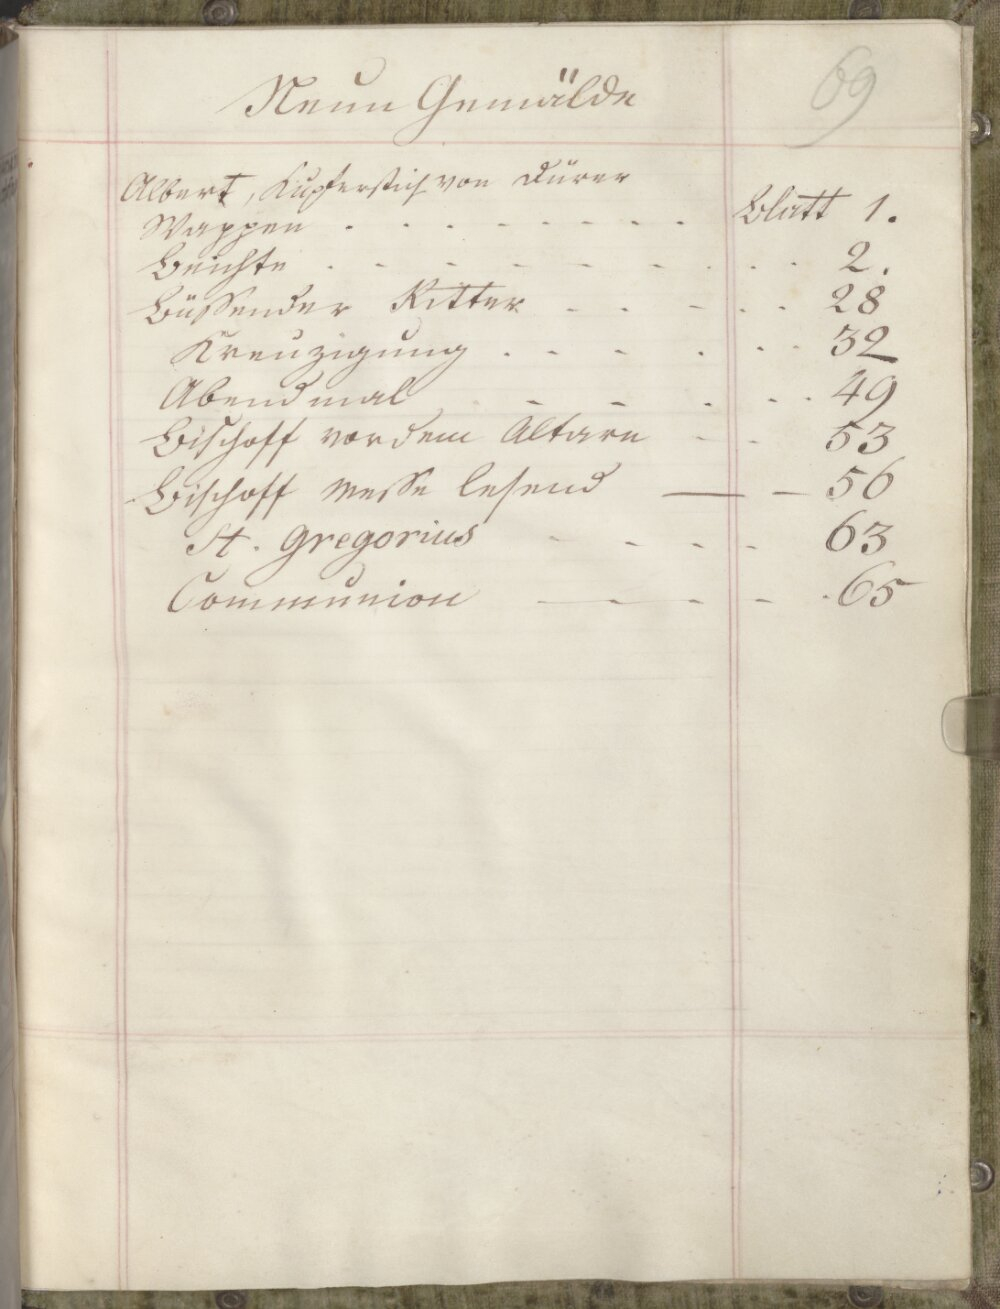 69
Neun Gemälde
Albert, Kupferstich von Dürer
Wappen . . . . . . . . Blatt 1.
Beichte . - - - - - - . . . 2.
Büssender Ritter - . - . . 28
Kreuzigung . - - . . . 32
Abendmal - - . - . . 49
Bischoff vor dem Altare - - 53
Bischoff Messe lesend — - 56
St. Gregorius - - - - - 63
Communion - - - - . 65